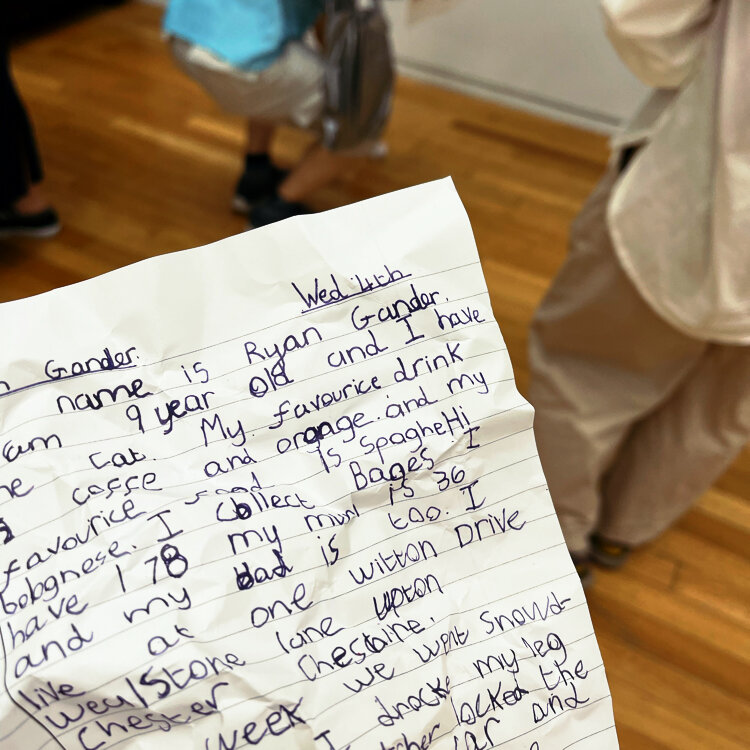 Wed 4th
Gander.
name is Ryan Gander.
am 9 year old and I have
cat. My favourice drink
coffe and orange. and my
favourice food is spagheHi
bobgnese. I collect Bages I
have 178 my mum is 36
and my dad is too. I
live at one witton Drive
wealstone lane upton
Chester Chestaine.
week we went snowd-
I my leg
locked the
and